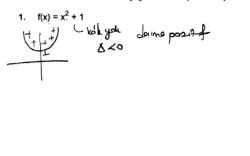 1. f(x) = x² + 1
kök yok
Δ < 0
daima pozitif
+ + + +